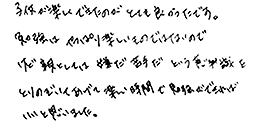 全体が楽しくできたのがとても良かったです。
勉強はやっぱり楽しいものではないので
けど親としては嫌だ苦手だという意識を
とりのぞいてあげて楽しい時間で勉強ができれば
いいと思いました。